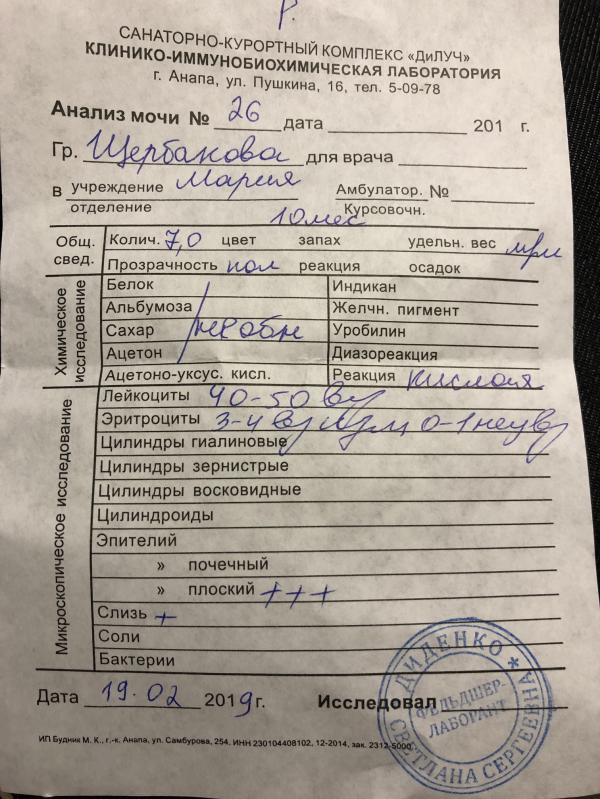 Р.
САНАТОРНО-КУРОРТНЫЙ КОМПЛЕКС «ДиЛУЧ»
КЛИНИКО-ИММУНОБИОХИМИЧЕСКАЯ ЛАБОРАТОРИЯ
г. Анапа, ул. Пушкина, 16, тел. 5-09-78
Анализ мочи № 26 дата 201 г.
Гр. Щербакова для врача
в учреждение Мария Амбулатор. №
отделение 10 мес Курсовочн.
Общ. свед.
Колич. 7,0 цвет запах удельн. вес
Прозрачность пол реакция осадок
Химическое исследование
Белок Индикан
Альбумоза Желчн. пигмент
Сахар не обн Уробилин
Ацетон Диазореакция
Ацетоно-уксус. кисл. Реакция кислая
Микроскопическое исследование
Лейкоциты 40-50
Эритроциты 3-4 0-1
Цилиндры гиалиновые
Цилиндры зернистрые
Цилиндры восковидные
Цилиндроиды
Эпителий
» почечный
» плоский +++
Слизь +
Соли
Бактерии
Дата 19.02 2019 г. Исследовал
ДИДЕНКО * СВЕТЛАНА СЕРГЕЕВНА
ФЕЛЬДШЕР-
ЛАБОРАНТ
ИП Будник М. К., г.-к. Анапа, ул. Самбурова, 254. ИНН 230104408102, 12-2014, зак. 2312-5000.